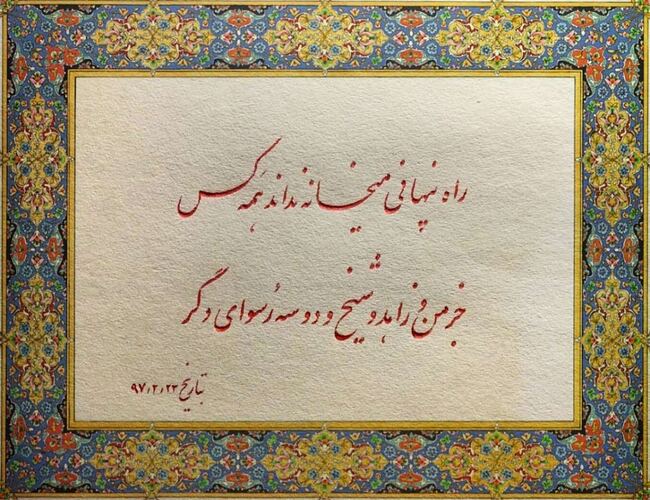 راه پنهانی میخانه نداند همه کس
جز من و زاهد و شیخ و دو سه رسوای دگر
بتاریخ ۹۷٫۲٫۲۳